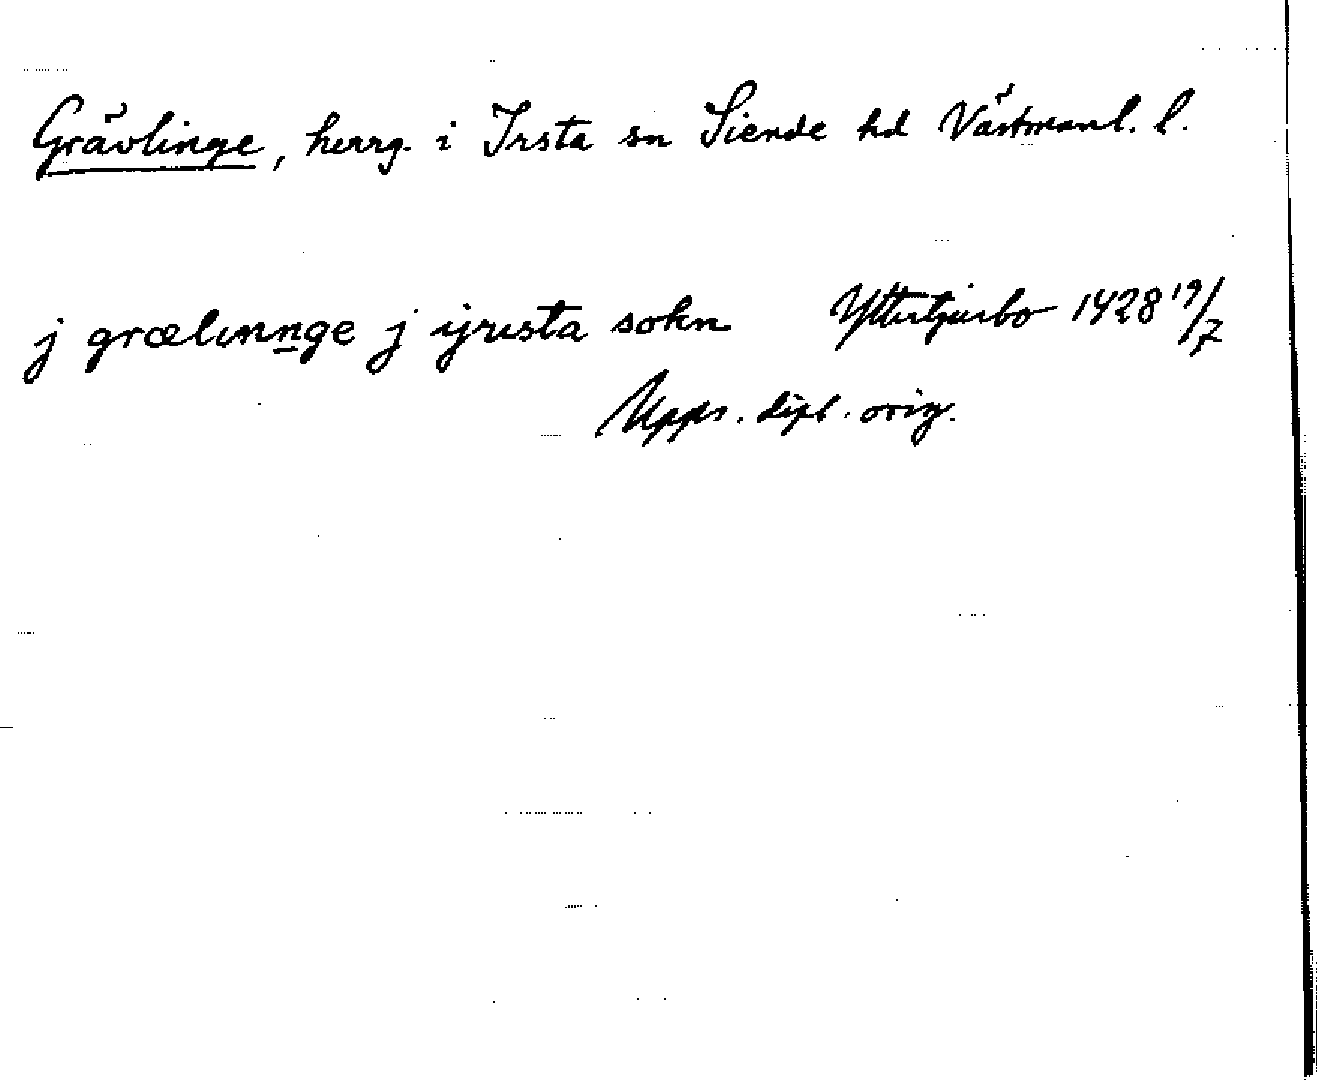 Grävlinge, herrg. i Irsta sn Siende hd Västmanl. l.
j grælinnge j ijrista sokn Yttertjurbo 1428 19/7
Upps. dipl. orig.